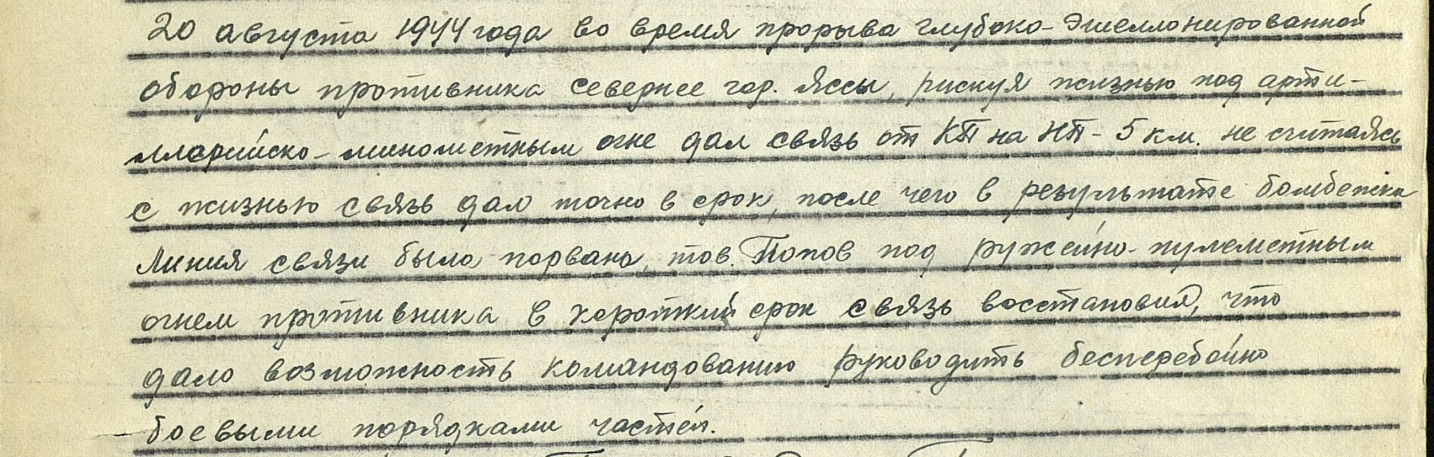 20 августа 1944 года во время прорыва глубоко-эшелонированной
обороны противника севернее гор. Яссы, рискуя жизнью под арти-
ллерийско-минометным огне дал связь от КП на НП - 5 км. не считаясь
с жизнью связь дал точно в срок, после чего в результате бомбежки
линия связи была порвана, тов. Попов под ружейно-пулеметным
огнем противника в короткий срок связь восстановил, что
дало возможность командованию руководить бесперебойно
боевыми порядками частей.